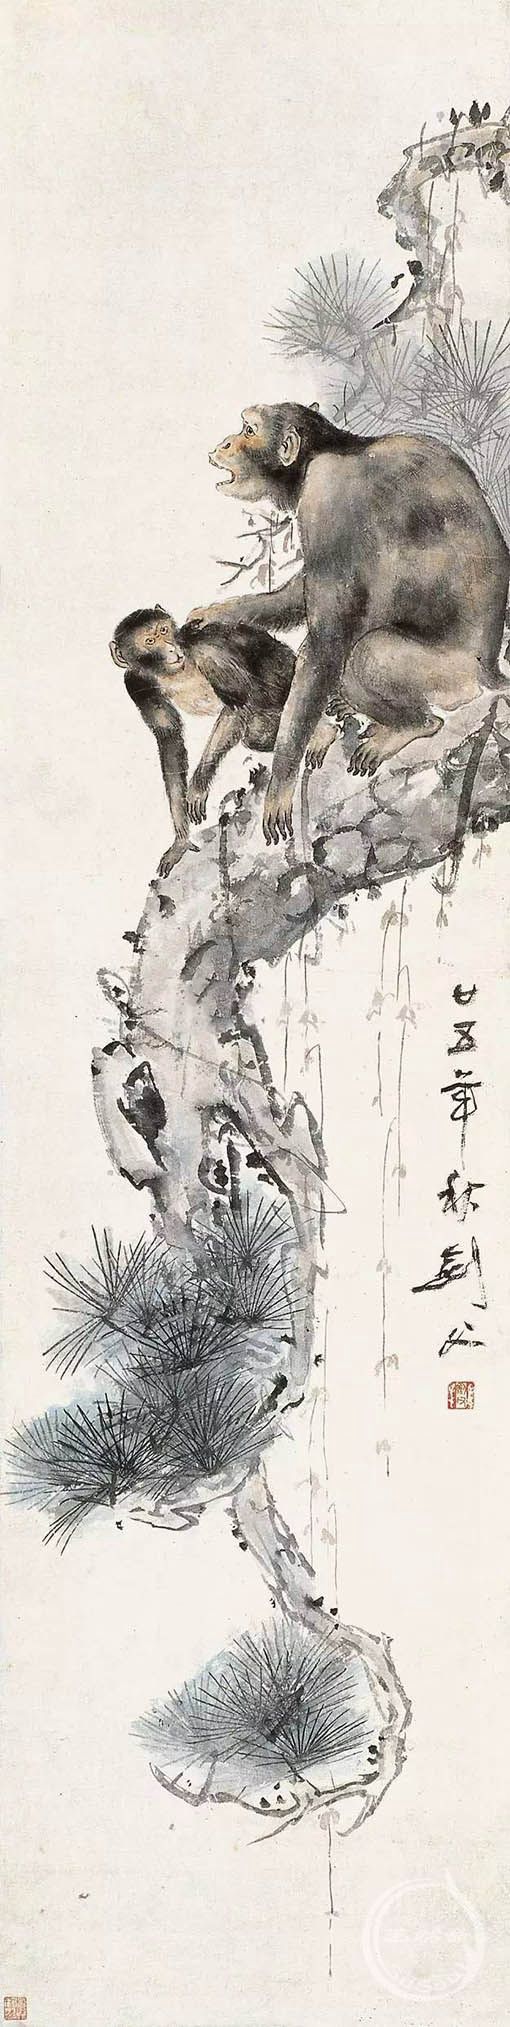 廿五年秋劍父